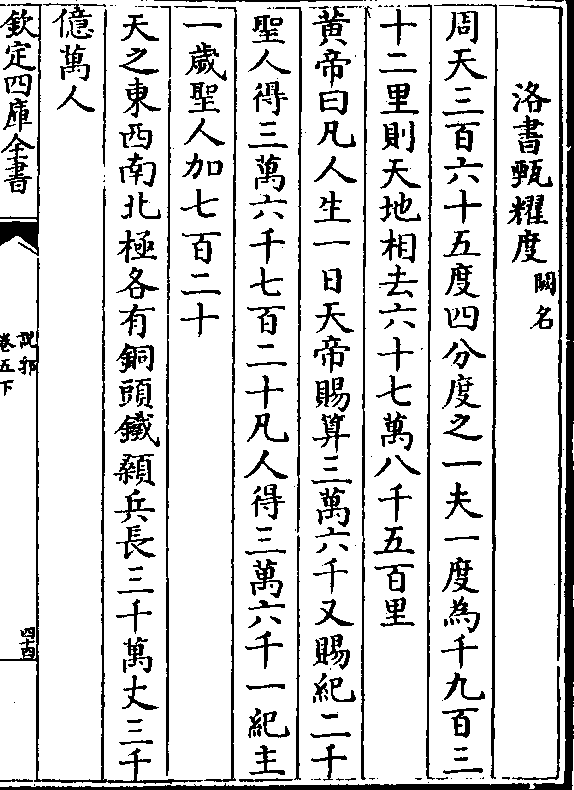 洛書甄耀度 闕名
周天三百六十五度四分度之一夫一度為千九百三
十二里則天地相去六十七萬八千五百里
黃帝曰凡人生一日天帝賜算三萬六千又賜紀二千
聖人得三萬六千七百二十凡人得三萬六千一紀主
一歲聖人加七百二十
天之東西南北極各有銅頭鐵額兵長三千萬丈三千
億萬人
欽定四庫全書
說郛
卷五下
四十四